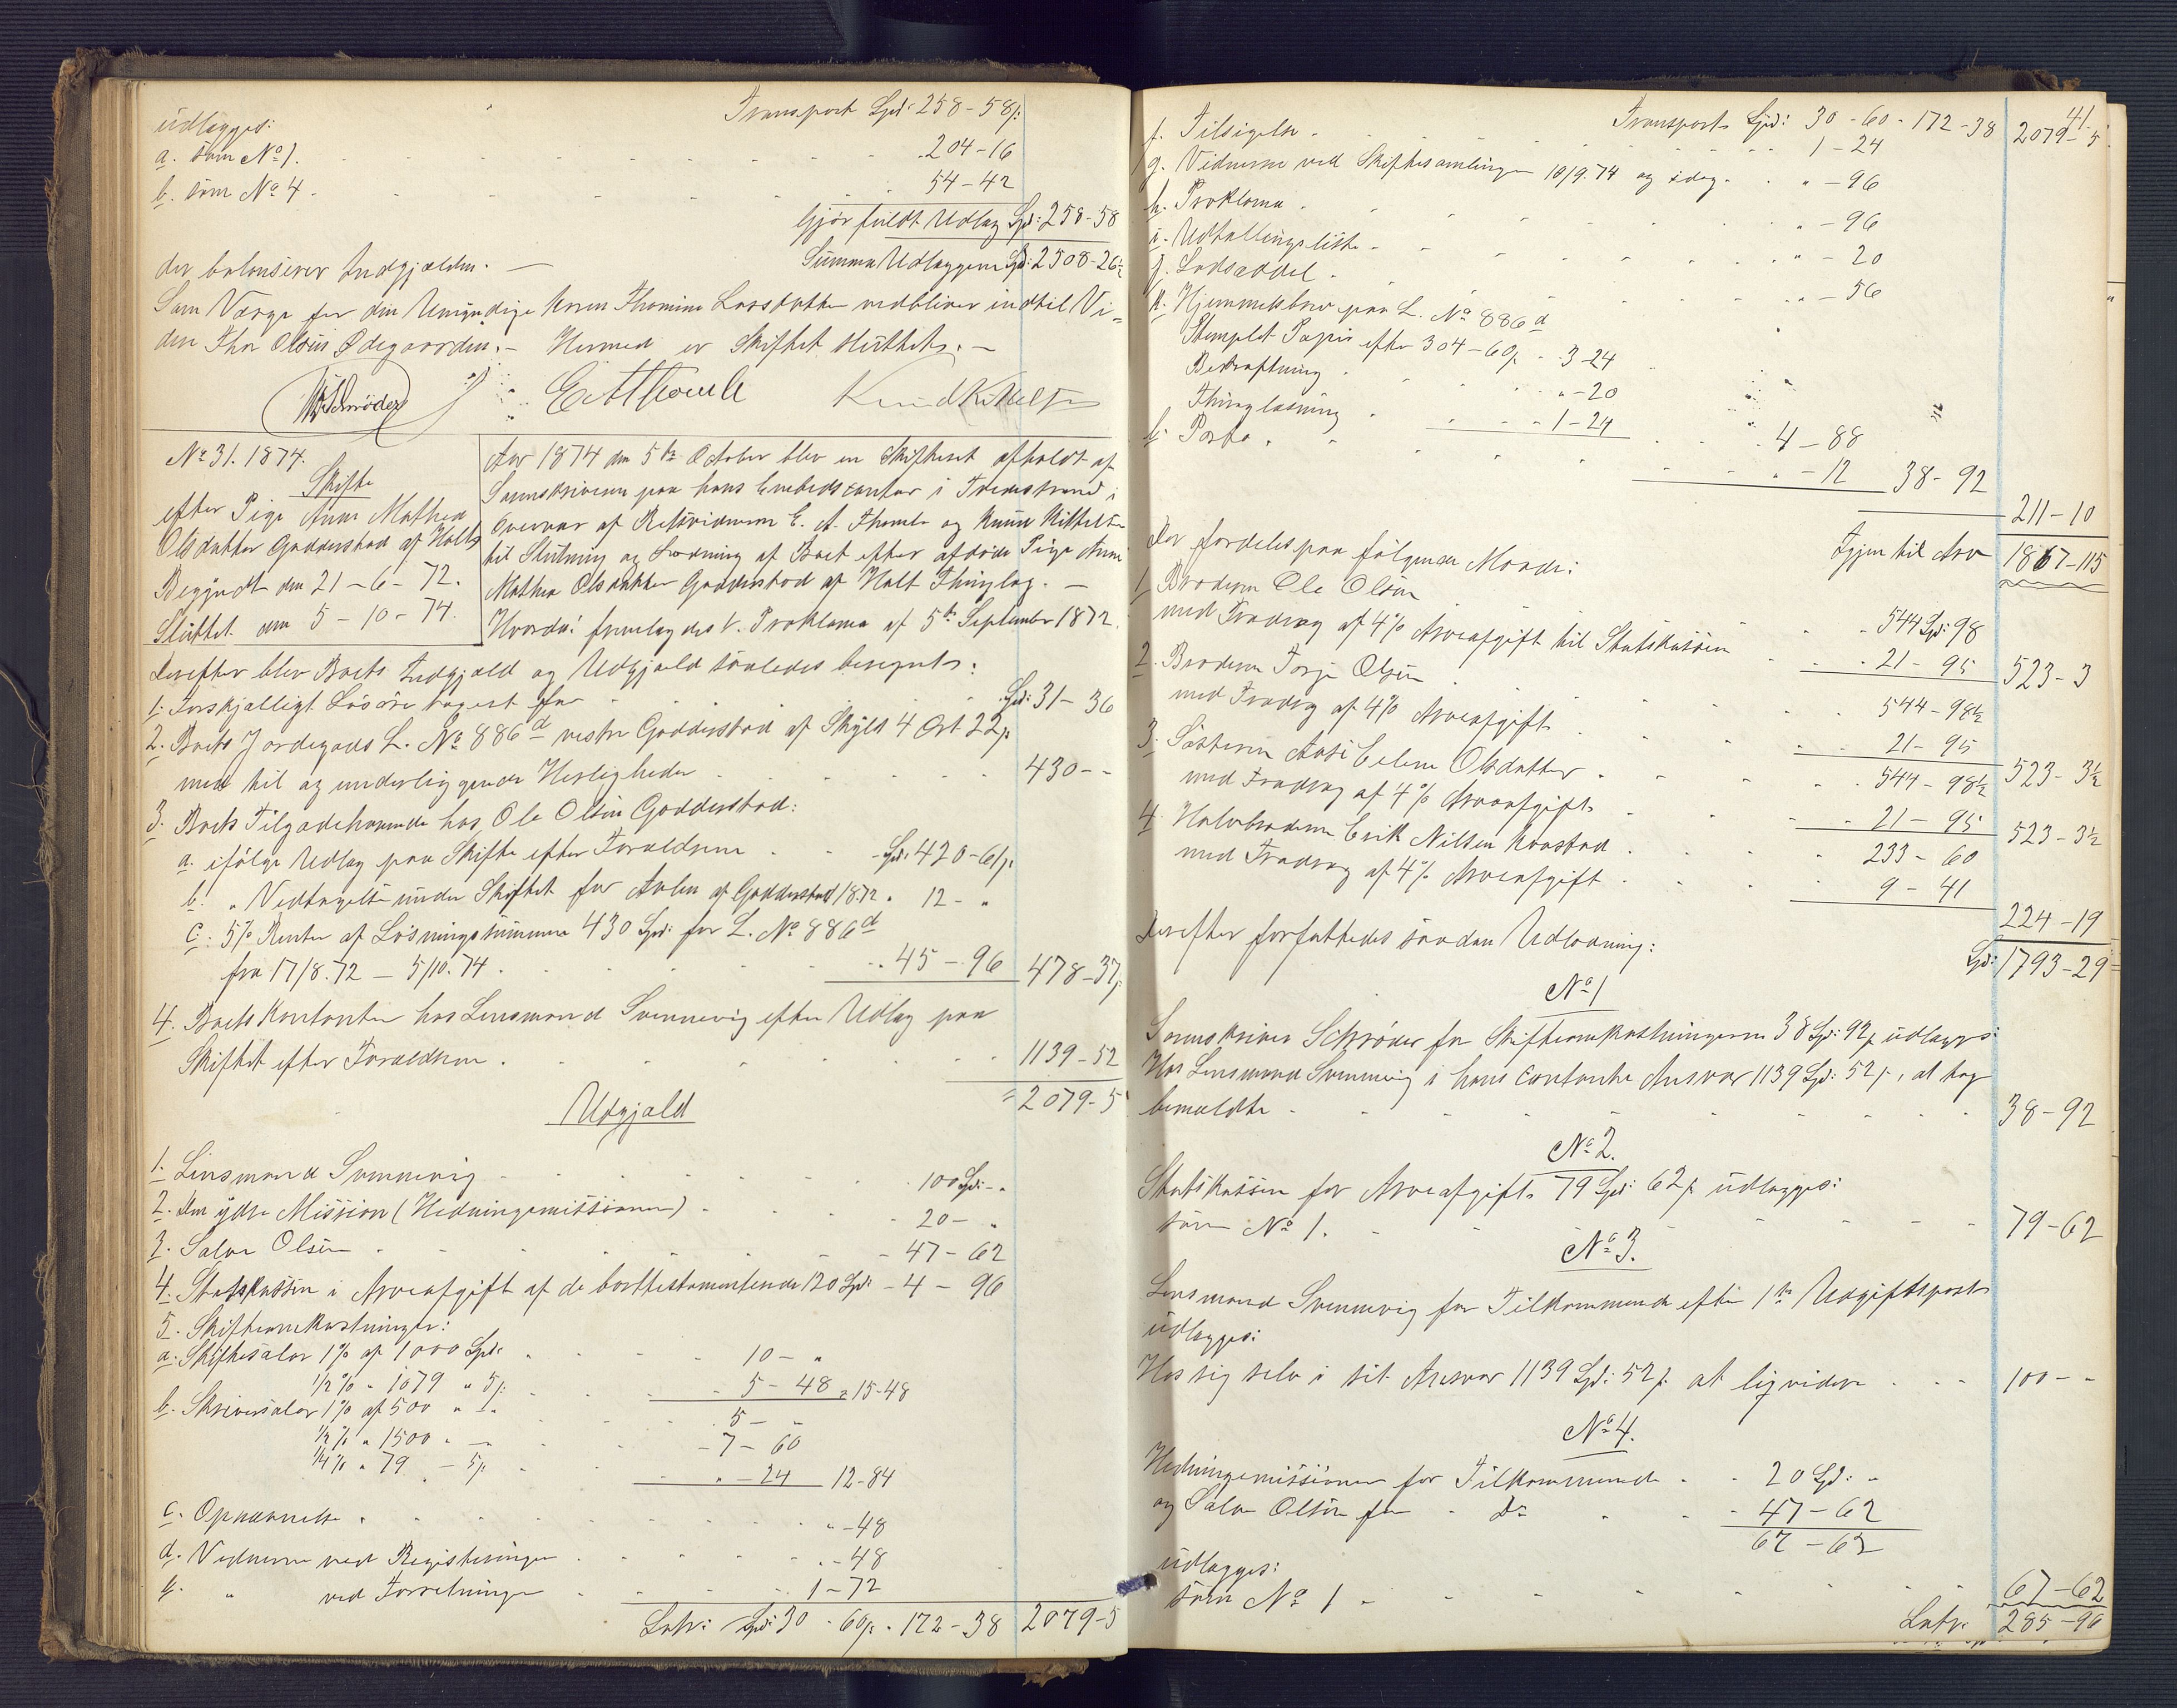 Transport Spd: 258-58/:
udlægges:
a. som No 1. 204-16
b. som No 4. 54-42
Gjør fuldt Udlæg Spd: 258-58
Summa Udlæggene Spd: 2508-26½
der balanserer Indgjælden. —
Som Værge for den Umyndige Maren Thomine Larsdatter vedbliver indtil Vi=
dere Thor Olsen Ødegaarden. — Hermed er Skiftet sluttet. —
Schrøder EAThomle Knud Kittelsen
No 31. 1874.
Skifte
efter Pige Anne Mathea
Olsdatter Godderstad af Holt
Begyndt den 21-6-72.
Sluttet den 5-10-74.
Aar 1874 den 5te October blev en Skifteret afholdt af
Sorenskriveren paa hans Embedscontor i Tvedestrand i
Overvær af Retsvidnerne E. A. Thomle og Knud Kittelsen
til Slutning og Lodning af Boet efter afdøde Pige Anne
Mathea Olsdatter Godderstad af Holt Thinglag. —
Hvorda: fremlagdes 1. Proklama af 5te September 1872.
Derefter blev Boets Indgjæld og Udgjæld saaledes beregnet:
1. Forskjælligt Løsøre taxeret for Spd: 31-36
2. Boets Jordegods L. No 886d vestre Godderstad af Skyld 4 Ort 22/:
med til og underliggende Herligheder 430--
3. Boets Tilgodehavende hos Ole Olsen Godderstad:
a. ifølge Udlæg paa Skifte efter Forældrene Spd: 420-61/:
b. " Vedtagelse under Skiftet for Avlen af Godderstad 1872 " 12- "
c. 5% Renter af Løsningssummen 430 Spd: for L. No 886d
fra 17/8.72 — 5/10.74. 45-96 478-37/:
4. Boets Kontanter hos Lensmand Svennevig efter Udlæg paa
Skiftet efter Forældrene. 1139-52
2079-5
Udgjæld
1. Lensmand Svennevig 100 Spd: - "
2. Den ydre Mission (Hedningemissionen) 20- "
3. Salve Olsen 47-62
4. Statskassen i Arveafgift af de borttestamenterede 120 Spd: 4-96
5. Skifteomkostninger:
a. Skiftesalær 1% af 1000 Spd: 10- "
½% " 1079 " 5/: 5-48 = 15-48
b. Skriversalær 1% af 500 " 5- "
½% " 1500 " — 7-60
¼% " 79 - 5/: " -24 12-84
c. Opnævnelse " -48
d. Vidnerne ved Registeringen " -48
e. " ved Forretningen 1-72
Latr: Spd: 30 - 60/: 172-38 2079-5
41
Transport Spd: 30-60- 172-38 2079-5
f. Tilsigelse 1-24
g. Vidnerne ved Skiftesamlingen 10/9.74 og idag " -96
h. Proklama " -96
i. Udtællingsliste " -20
j. Lodseddel " -56
k. Hjemmelsbrev paa L. No 886d
Stemplet Papir efter 304-60/: 3-24
Bekræftning " -20
Thinglæsning 1-24 4-88
l. Porto " -12 38-92
211-10
Igjen til Arv 1867-115
Der fordeles paa følgende Maade:
1. Broderen Ole Olsen 544 Spd: 98
med Fradrag af 4% Arveafgift til Statskassen 21-95 523-3
2. Broderen Torje Olsen 544-98½
med Fradrag af 4% Arveafgift 21-95 523-3½
3. Søsteren Aase Helene Olsdatter 544-98½
med Fradrag af 4% Arveafgift 21-95 523-3½
4. Halvbroderen Erik Nilsen Kvastad 233-60
med Fradrag af 4% Arveafgift 9-41 224-19
Spd: 1793-29
Derefter forfattedes saadan Udlodning:
No 1
Sorenskriver Schrøder for Skifteomkostningerne 38 Spd: 92/: udlægges:
Hos Lensmand Svennevig i hans contante Ansvar 1139 Spd: 52/:, at tage
bemeldte 38-92
No 2.
Statskassen for Arveafgift 79 Spd: 62/: udlægges:
som No 1. 79-62
No 3.
Lensmand Svennevig for Tilkommende efter 1ste Udgiftspost
udlægges:
Hos sig selv i sit Ansvar 1139 Spd: 52/: at liqvidere 100- -
No 4.
Hedningemissionen for Tilkommende 20 Spd: "
og Salve Olsen for do 47-62
67-62
udlægges:
som No 1 67-62
Latr: 285-96